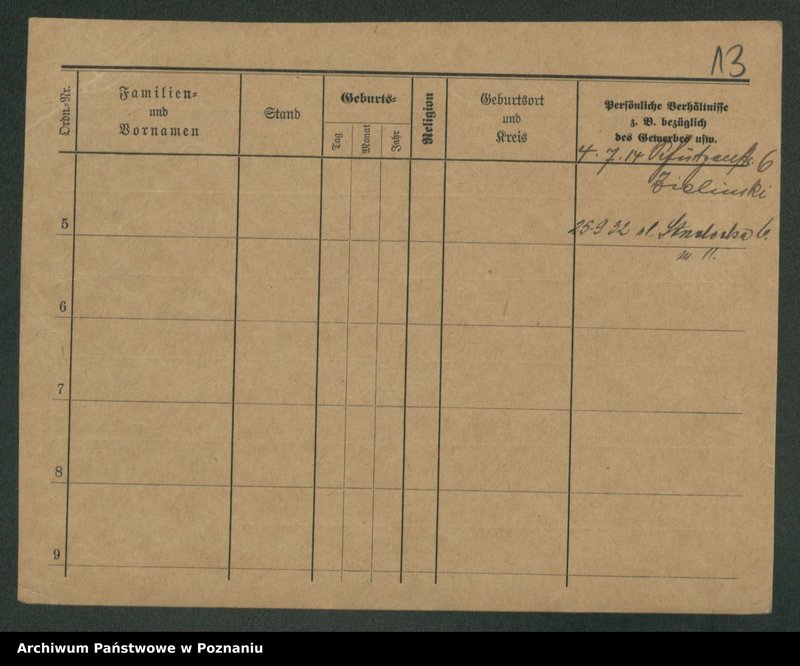 13
Ordn.-Nr.
Familien-
und
Vornamen
Stand
Geburts-
Tag
Monat
Jahr
Religion
Geburtsort
und
Kreis
Persönliche Verhältnisse
z. B. bezüglich
des Gewerbes usw.
4. 7. 14 6
Zielinski
5
25 9 32 6.
6
7
8
9
Archiwum Państwowe w Poznaniu